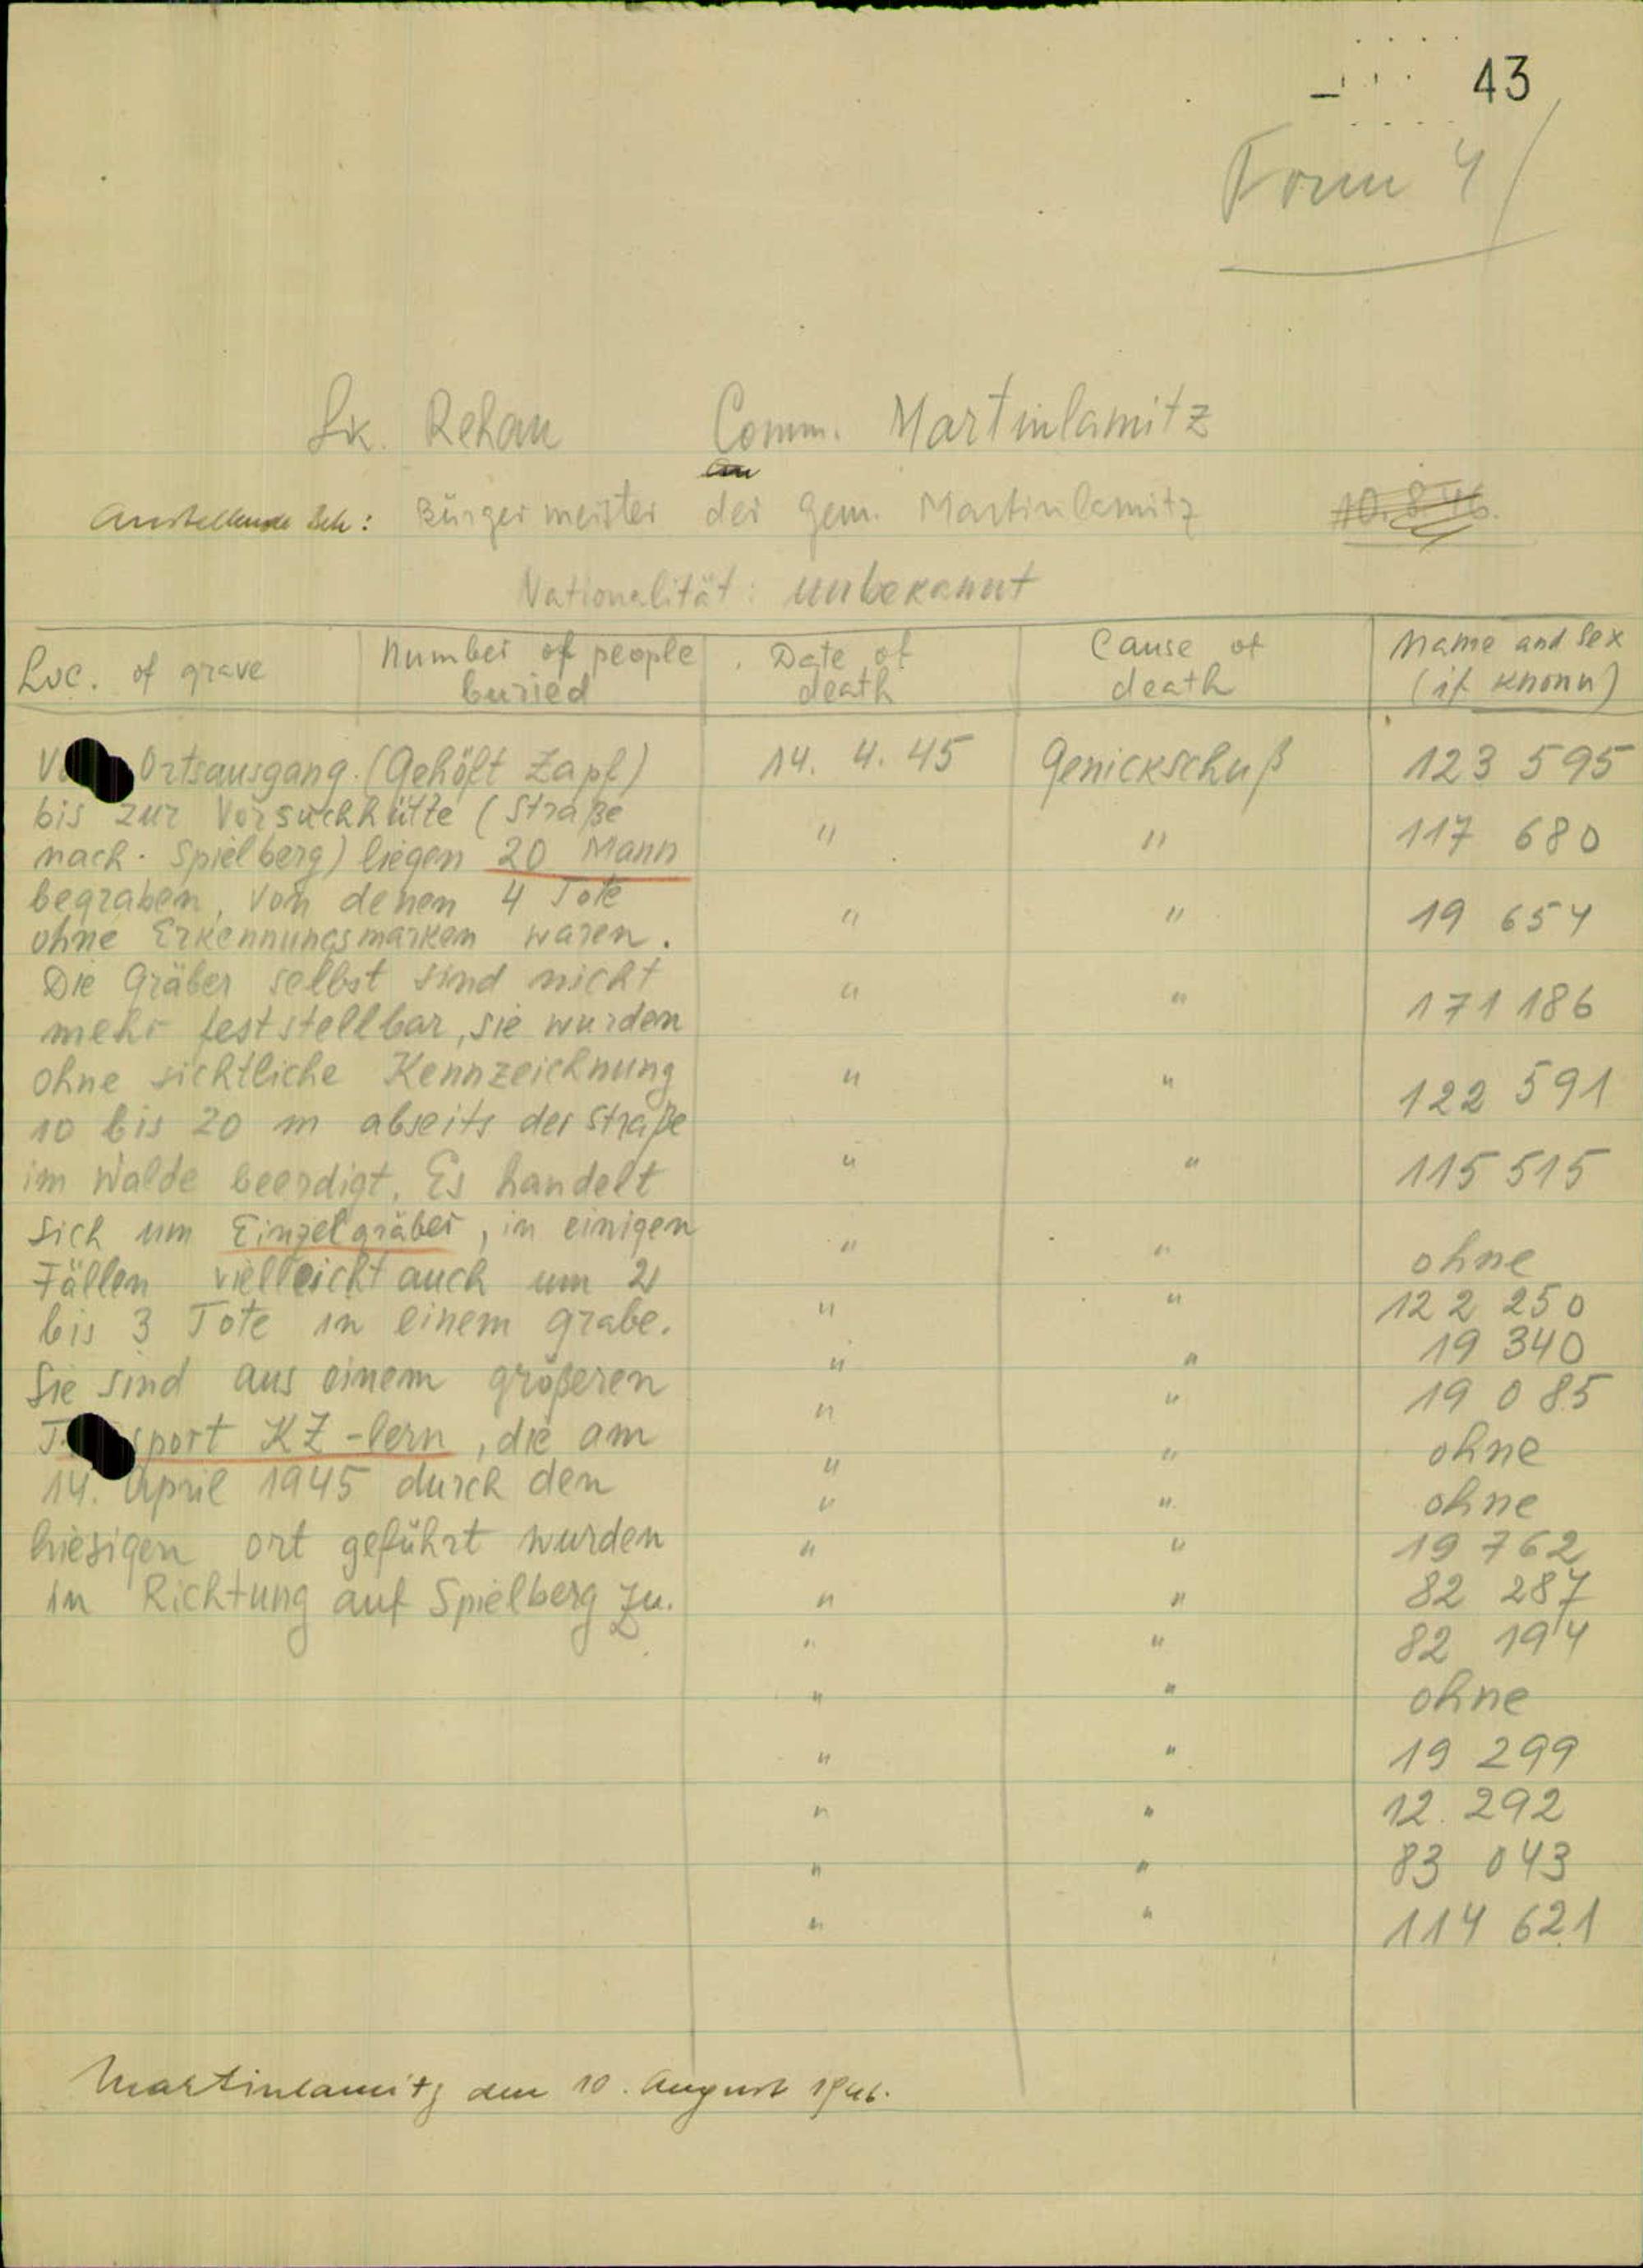 43
Form 4
Lk. Rehau Comm. Martinlamitz
Ausstellende Beh: Bürgermeister der Gem. Martinlamitz 10.8.46.
Nationalität: unbekannt
Loc. of grave Number of people buried Date of death Cause of death Name and Sex (if known)
Ortsausgang (Gehöft Zapf) 14. 4. 45 Genickschuß 123 595
bis zur Versuchhütte (Straße
nach Spielberg) liegen 20 Mann " " 117 680
begraben, von denen 4 Tote
ohne Erkennungsmarken waren. " " 19 654
Die Gräber selbst sind nicht
mehr feststellbar, sie wurden " " 171 186
ohne sichtliche Kennzeichnung
10 bis 20 m abseits der Straße " " 122 591
im Walde beerdigt. Es handelt " " 115 515
sich um Einzelgräber, in einigen
Fällen vielleicht auch um 2 " " ohne
bis 3 Tote in einem Grabe. " " 122 250
Sie sind aus einem größeren " " 19 340
" " 19 085
sport KZ-lern, die am " " ohne
14. April 1945 durch den " " ohne
hiesigen Ort geführt wurden " " 19 762
in Richtung auf Spielberg zu. " " 82 287
" " 82 194
" " ohne
" " 19 299
" " 12.292
" " 83 043
" " 114 621
Martinlamitz den 10. August 1946.